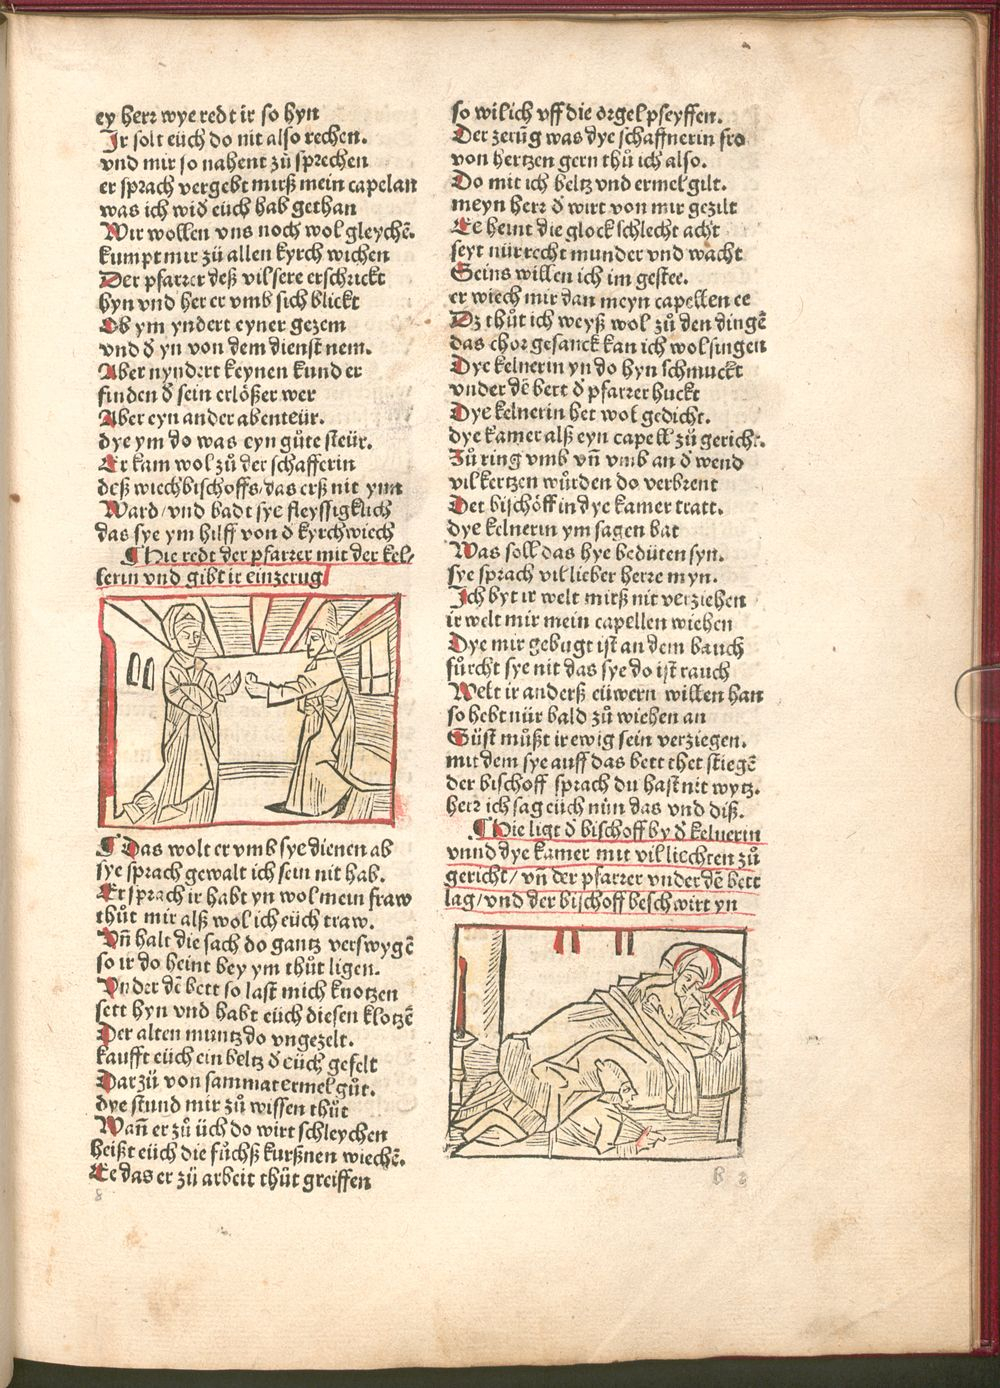 ey herr wye redt ir so hyn
Ir solt eüch do nit also rechen.
vnd mir so nahent zů sprechen
er sprach vergebt mirß mein capelan
was ich wid̄ eüch hab gethan
Wir wollen vns noch wol gleychē.
kumpt mir zü allen kyrch wichen
Der pfarrer deß vil sere erschrickt
hyn vnd her er vmb sich blickt
Ob ym yndert eyner gezem
vnd d̄ yn von dem dienst nem.
Aber nyndert keynen kund er
finden d̄ sein erlößer wer
Aber eyn ander abenteür.
dye ym do was eyn gůte steür.
Er kam wol zů der schafferin
deß wiechbischoffs/das erß nit ynn
Ward/vnd badt sye fleyssigklich
das sye ym hilff von d̄ kyrchwiech
¶ Hie redt der pfarrer mit der kel-
lerin vnd gibt ir ein zerug
¶ Das wolt er vmb sye dienen ab
sye sprach gewalt ich sein nit hab.
Er sprach ir habt yn wol mein fraw
thůt mir alß wol ich eüch traw.
Vn̄ halt die sach do gantz verswygē
so ir do heint bey ym thůt ligen.
Vnder dē bett so last mich knotzen
sett hyn vnd habt eüch diesen klotzē
Der alten muntz do vngezelt.
kaufft eüch ein beltz d̄ eüch gefelt
Dar zü von sammat ermel gůt.
dye stund mir zů wissen thůt
Wan̄ er zů üch do wirt schleychen
heißt eüch die fůchß kurßnen wiechē.
Ee das er zü arbeit thüt greiffen
8
so wil ich vff die orgel pfeyffen.
Der zerūg was dye schaffnerin fro
von hertzen gern thů ich also.
Do mit ich beltz vnd ermel gilt.
meyn herr d̄ wirt von mir gezilt
Ee heint die glock schlecht acht
seyt nür recht munder vnd wacht
Seins willen ich im gestee.
er wiech mir dan meyn capellen ee
Dz thůt ich weyß wol zů den dingē
das chor gesanck kan ich wol singen
Dye kelnerin yn do hyn schmuckt
vnder dē bett d̄ pfarrer huckt
Dye kelnerin het wol gedicht.
dye kamer alß eyn capell zů gericht.
Zů ring vmb vn̄ vmb an d̄ wend
vil kertzen würden do verbrent
Der bischöff in dye kamer tratt.
dye kelnerin ym sagen bat
Was soll das hye bedüten syn.
sye sprach vil lieber herre myn.
Ich byt ir welt mirß nit verziehen
ir welt mir mein capellen wiehen
Dye mir gebugt ist an dem bauch
fürcht sye nit das sye do ist rauch
Welt ir anderß eüwern willen han
so hebt nür bald zů wiehen an
Süst můßt ir ewig sein verziegen.
mit dem sye auff das bett thet stiegē
der bischoff sprach du hast nit wytz.
herr ich sag eüch nün das vnd diß.
¶ Hie ligt d̄ bischoff by d̄ kelnerin
vnnd dye kamer mit vil liechten zů
gericht/ vn̄ der pfarrer vnder dē bett
lag/vnd der bischoff beschwirt yn
B 2